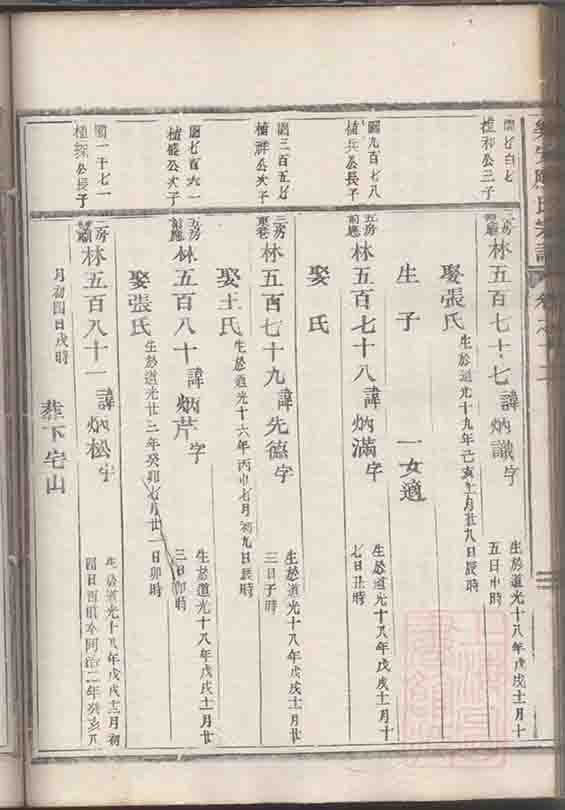 林五百七十七諱炳識字
生於道光十八年戊戌十一月十
五日申時
娶張氏
生於道光十九年己亥十一月廿九日辰時
生子
一女適
五房
前應
林五百七十八諱炳滿字
生於道光十八年戊戌十一月十
七日丑時
娶 氏
三房
東巷
林五百七十九諱先德字
生於道光十八年戊戌十一月廿
三日子時
娶王氏
生於道光十六年丙申七月初九日辰時
五房
前應
林五百八十諱炳芹字
生於道光十八年戊戌十一月廿
三日卯時
娶張氏
生於道光廿三年癸卯七月廿一日卯時
林五百八十一諱炳松字
生於道光十八年戊戌十二月初
四日酉時卒同治二年癸亥八
月初四日戌時
葬下宅山
公三子
國九百七八
植兵公長子
國三百五七
植祥公次子
國七百六一
公次子
國一千七一
植深公長子